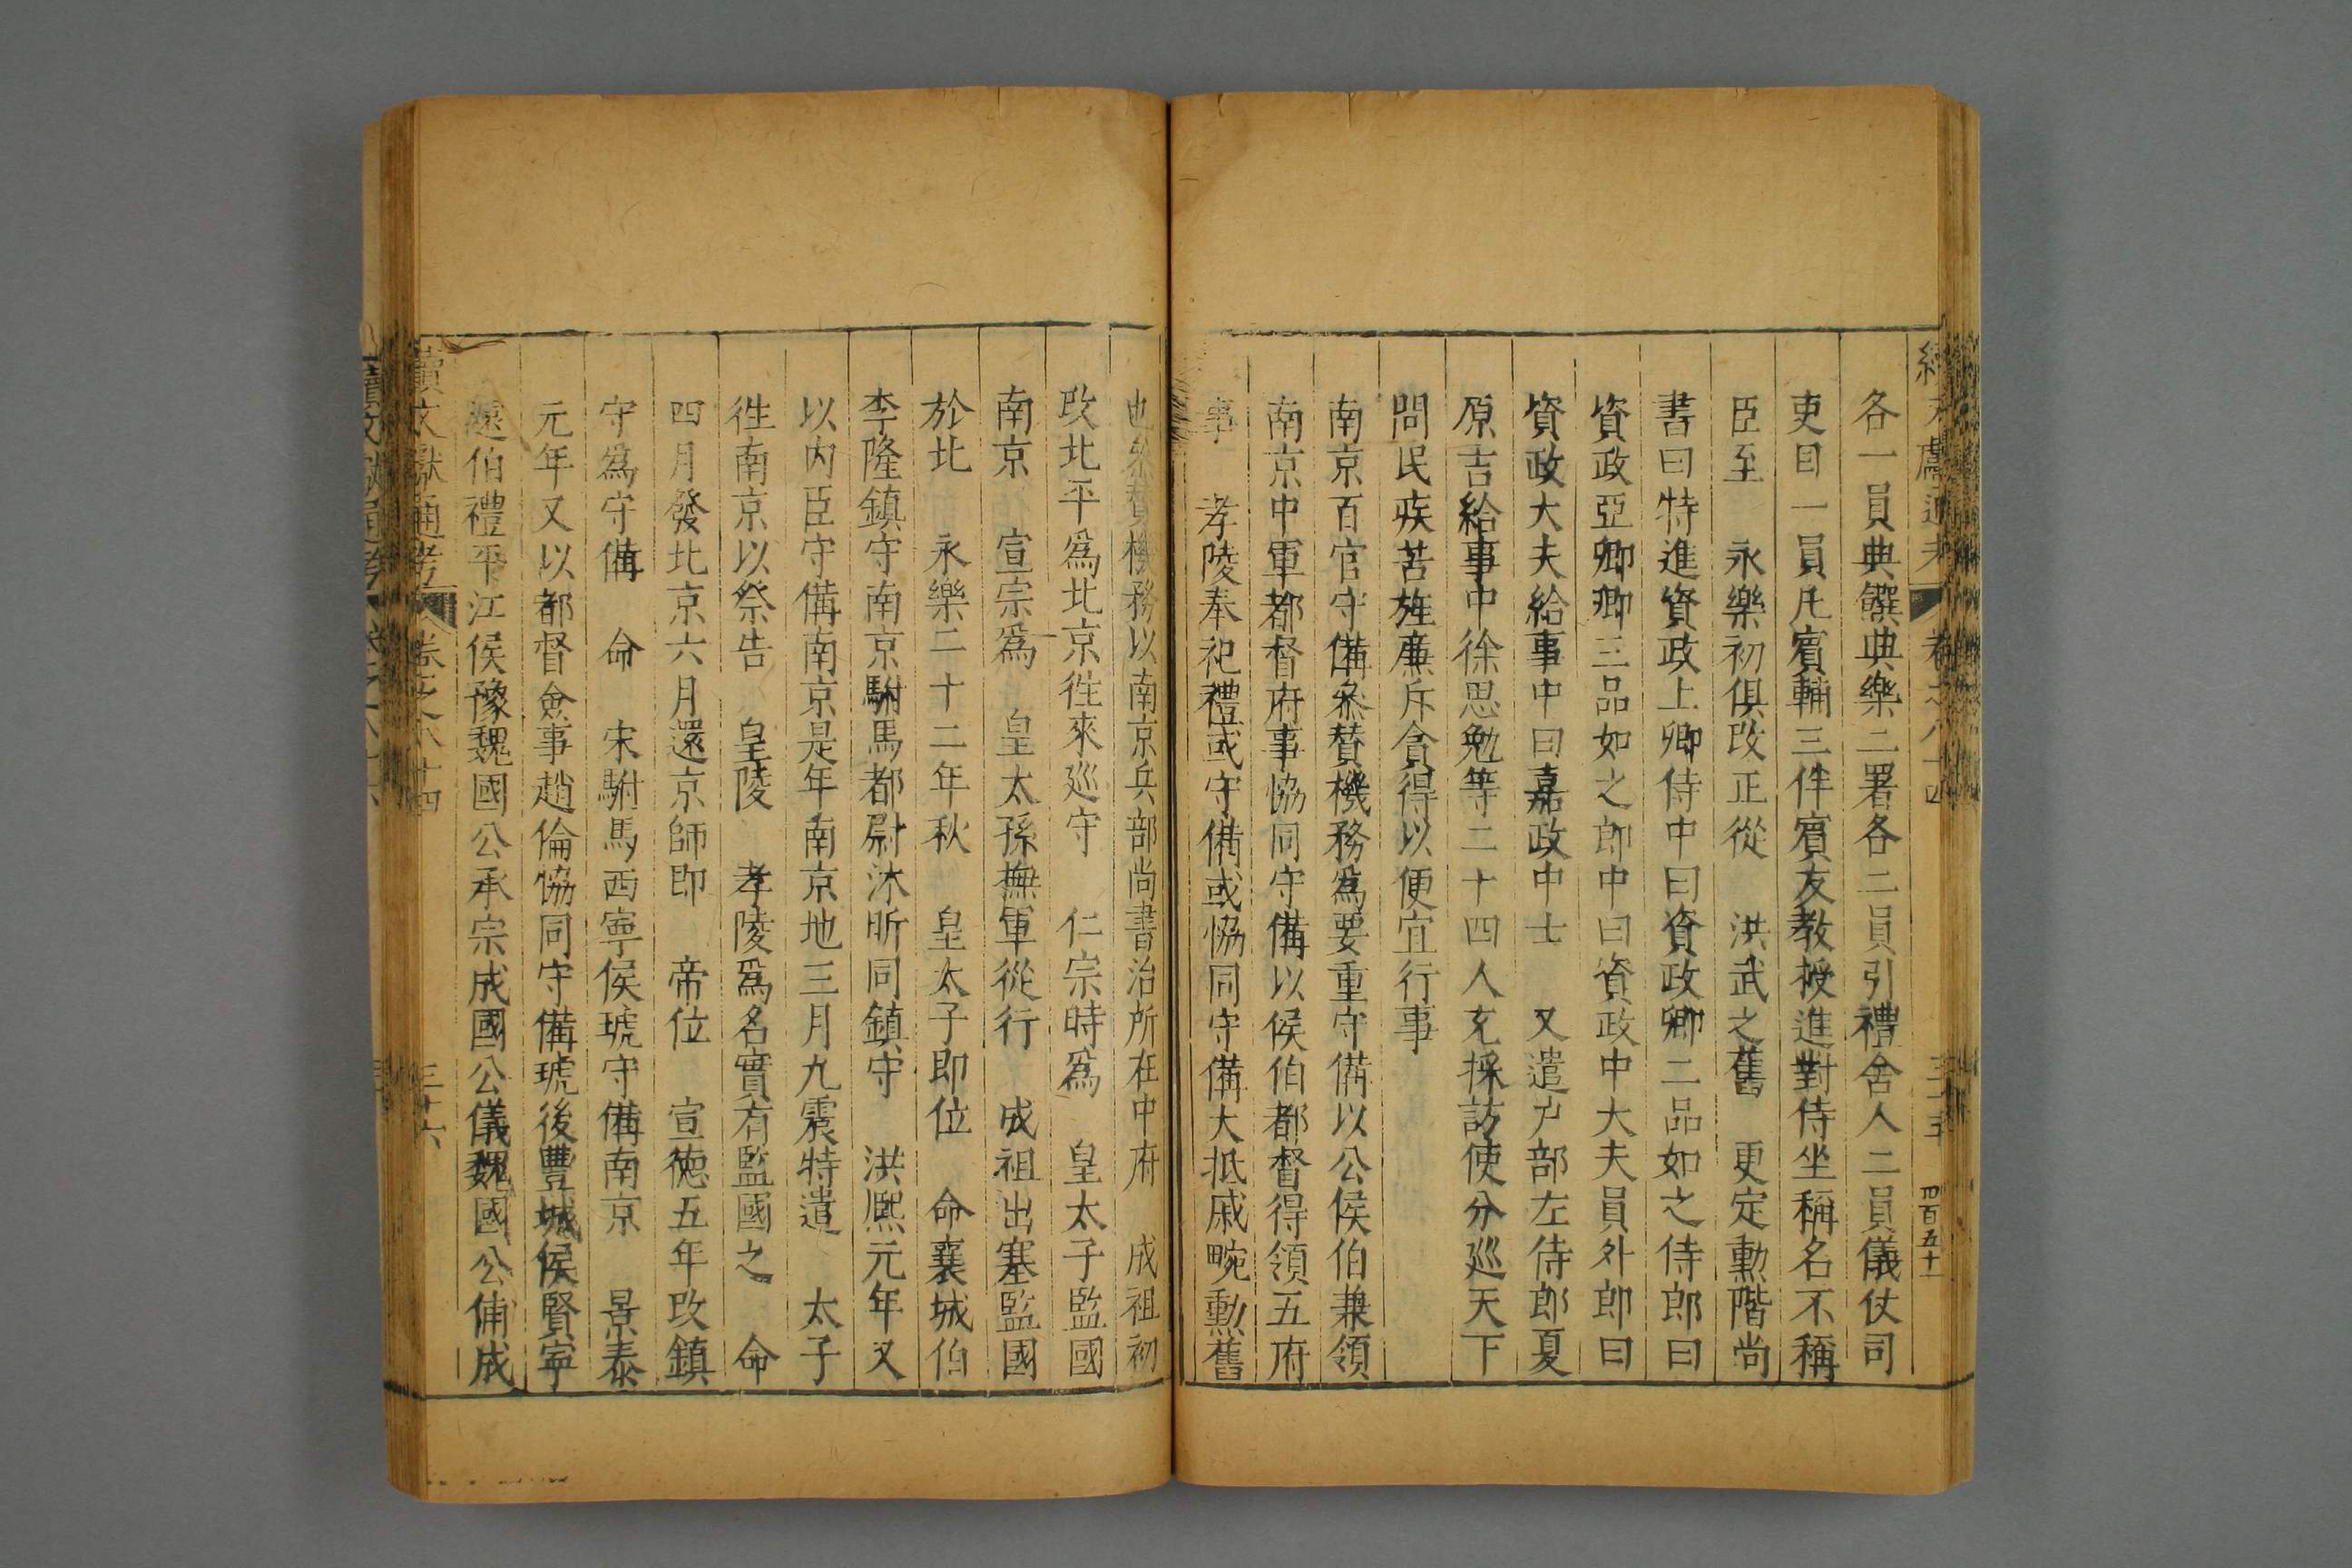 卷之八十四
三十五
四百五十一
各一員典饌典樂二署各二員引禮舍人二員儀仗司
吏目一員凡賓輔三伴賓友教授進對侍坐稱名不稱
臣至 永樂初俱改正從 洪武之舊 更定勳階尚
書曰特進資政上卿侍中曰資政卿二品如之侍郎曰
資政亞卿卿三品如之郎中曰資政中大夫員外郎曰
資政大夫給事中曰嘉政中士 又遣户部左侍郎夏
原吉給事中徐思勉等二十四人充採訪使分巡天下
問民疾苦旌廉斥貪得以便宜行事
南京百官守備叅贊機務爲要重守備以公侯伯兼領
南京中軍都督府事協同守備以侯伯都督得領五府
事 孝陵奉祀禮或守備或恊同守備大抵戚畹勳舊
也叅贊機務以南京兵部尚書治所在中府 成祖初
改北平爲北京徃來巡守 仁宗時爲 皇太子監國
南京 宣宗爲 皇太孫撫軍從行 成祖出塞監國
於北 永樂二十二年秋 皇太子即位 命襄城伯
李隆鎮守南京駙馬都尉沐昕同鎮守 洪熈元年又
以内臣守備南京是年南京地三月九震特遣 太子
徃南京以祭告 皇陵 孝陵爲名實有監國之 命
四月發北京六月還京師即 帝位 宣徳五年改鎮
守爲守備 命 宋駙馬西寧侯琥守備南京 景泰
元年又以都督僉事趙倫恊同守備琥後豐城侯賢寧
遠伯禮平江侯豫魏國公承宗成國公儀魏國公俌成
續文獻通考 卷之八十四
三十六